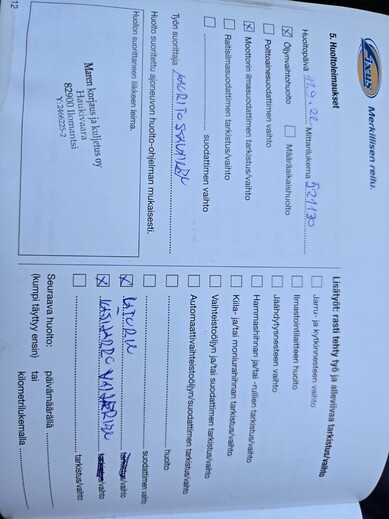 Fixus
Merkillisen reilu.
5. Huoltoleimaukset
Huoltopäivä Mittarilukema
Öljynvaihtohuolto Määräaikaishuolto
Polttoainesuodattimen vaihto
Moottorin ilmasuodattimen tarkistus/vaihto
Raitisilmasuodattimen tarkistus/vaihto
suodattimen vaihto
Työn suorittaja
Huolto suoritettu ajoneuvon huolto-ohjelman mukaisesti.
Huollon suorittaneen liikkeen leima.
korjaus ja kuljetus oy
Haukivaara
82900 Ilomantsi
Y:2466225-2
12
Lisätyöt: rasti tehty työ ja alleviivaa tarkistus/vaihto
Jarru- ja kytkinnesteen vaihto
Ilmastointilaitteen huolto
Jäähdytysnesteen vaihto
Hammashihnan ja/tai -rullien tarkistus/vaihto
Kiila- ja/tai moniurahihnan tarkistus/vaihto
Vaihteistoöljyn ja/tai suodattimen tarkistus/vaihto
Automaattivaihteistoöljyn/suodattimen tarkistus/vaihto
huolto
suodattimen vaihto
tarkistus/vaihto
tarkistus/vaihto
tarkistus/vaihto
Seuraava huolto: päivämäärällä
(kumpi täyttyy ensin) tai
kilometrilukemalla